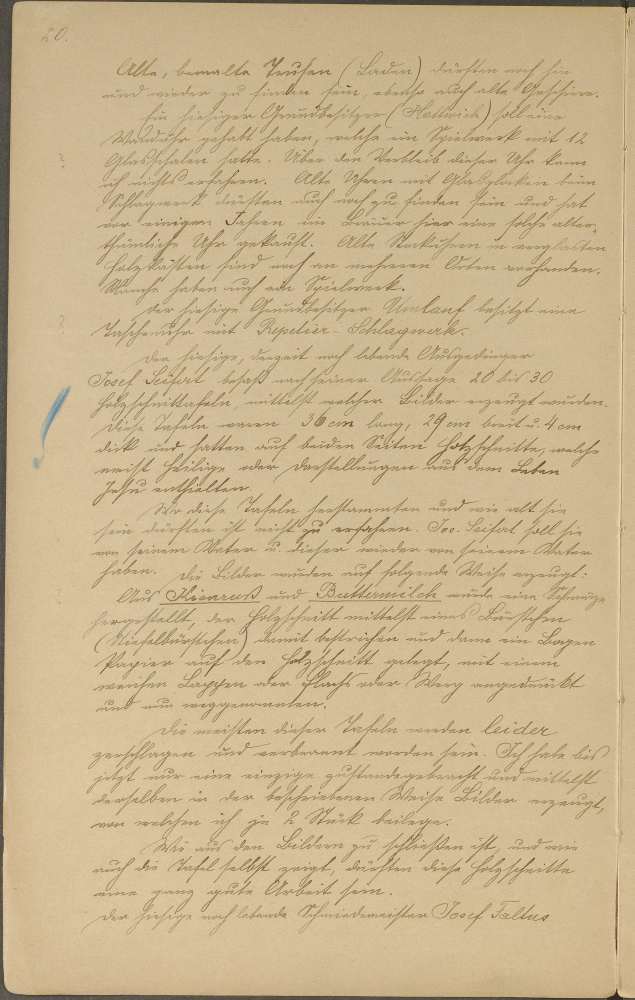 20.
Alte, bemalte Truhen (Laden) dürften noch hie
und wieder zu finden sein, ebenso auch alte Geschirre.
Ein hiesiger Grundbesitzer (Hettwich) soll eine
Wanduhr gehabt haben, welche ein Spielwerk mit 12
Glasschalen hatte. Über den Verbleib dieser Uhr kann
ich nichts erfahren. Alte Uhren mit Glasglocken beim
Schlagwerk dürften auch noch zu finden sein und hat
vor einigen Jahren ein hier eine solche alter-
thümliche Uhr gekauft. Alte Stockuhren in verglasten
Holzkästen sind noch an mehreren Orten vorhanden.
Manche haben auch ein Spielwerk.
Der hiesige Grundbesitzer Umlauf besitzt eine
Taschenuhr mit Repetier-Schlagwerk.
Der hiesige, derzeit noch lebende Ausgedinger
Josef Seifert besaß nach seiner Aussage 20 bis 30
Holzschnittafeln, mittelst welcher Bilder erzeugt wurden.
Diese Tafeln waren 36 cm lang, 29 cm breit u. 4 cm
dick und hatten auf beiden Seiten Holzschnitte, welche
meist Heilige oder Darstellungen aus dem Leben
Jesu enthielten.
Wo diese Tafeln herstammten und wie alt sie
sein dürften ist nicht zu erfahren. Jos. Seifert soll sie
von seinem Vater u. dieser wieder von seinem Vater
haben. Die Bilder wurden auf folgende Weise erzeugt:
Aus Kienruß und Buttermilch wurde eine Schwärze
hergestellt, der Holzschnitt mittelst eines Bürstchen
(Stiefelbürstchen) damit bestrichen und dann ein Bogen
Papier auf den Holzschnitt gelegt, mit einem
weichen Lappen oder Flachs oder Werg angedrückt
und nun weggenommen.
Die meisten dieser Tafeln werden leider
zerschlagen und verbrannt worden sein. Ich habe bis
jetzt nur eine einzige zustandegebracht und mittelst
derselben in der beschriebenen Weise Bilder erzeugt,
von welchen ich je 2 Stück beilege.
Wie aus den Bildern zu schließen ist, und wie
auch die Tafel selbst zeigt, dürften diese Holzschnitte
eine ganz gute Arbeit sein.
Der hiesige noch lebende Schmiedemeister Josef Faltus